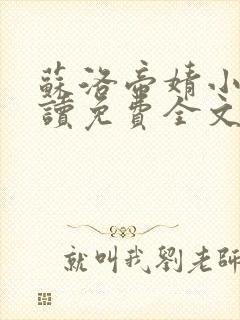 蘇洛帝婧小
讀免費全文
就叫我劉老師